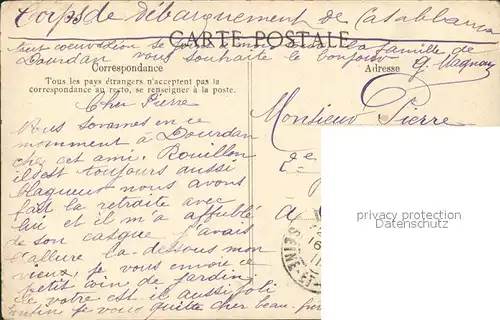 Corps de Débarquement de Casablanca
la famille de
Dourdan vous souhaite le bonjour G. Magnan
CARTE POSTALE
Correspondance
Adresse
Tous les pays étrangers n'acceptent pas la
correspondance au recto, se renseigner à la poste.
Cher Pierre
Nous sommes en ce
momment à Dourdan
chez cet ami Rouillon
il est toujours aussi
blagueur nous avons
fait la retraite avec
lui et il m'a affublé
de son casque j'avais
l'allure la-dessous mon
vieux, je vous envoie ce
petit coin de jardin
le votre est il aussi joli
enfin je vous quitte cher beau-frère
Monsieur Pierre
à
SEINE-ET-
privacy protection
datenschutz